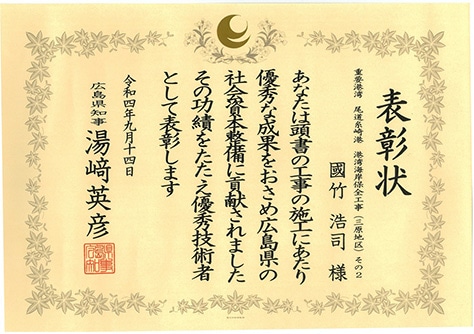 表彰状
重要港湾 尾道糸崎港 港湾海岸保全工事(三原地区)その2
國竹 浩司 様
あなたは頭書の工事の施工にあたり
優秀な成果をおさめ広島県の
社会資本整備に貢献されました
その功績をたたえ優秀技術者
として表彰します
令和四年九月十四日
広島県知事 湯﨑英彦